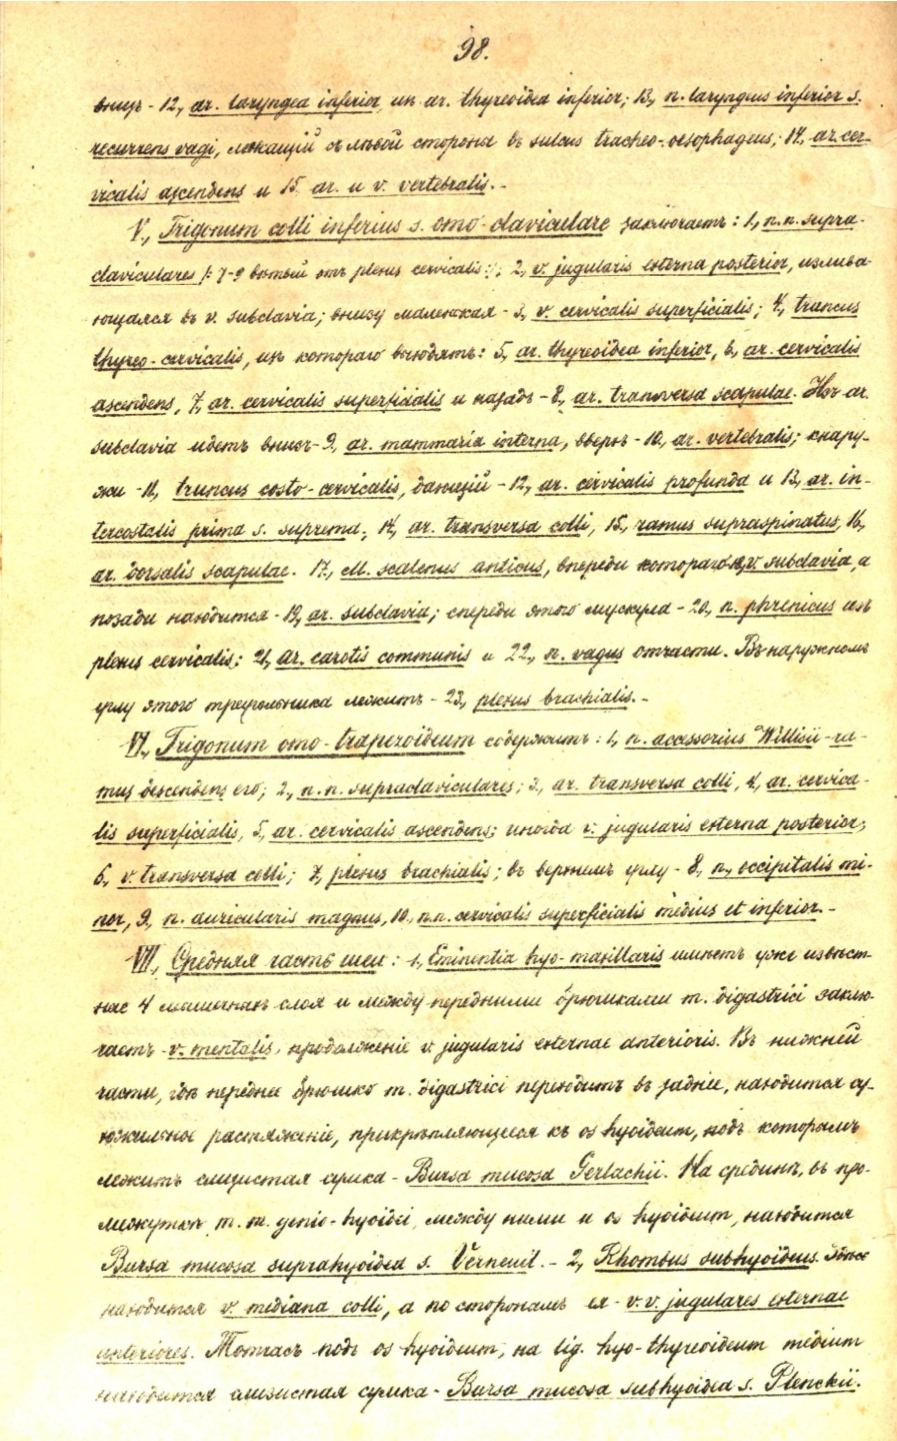 98.
внизъ - 12, ar. laryngea inferior изъ ar. thyreoidea inferior; 13, n. laryngeus inferior s.
recurrens vagi, лежащій съ лѣвой стороны въ sulcus tracheo-oesophageus; 14, ar. cer-
vicalis ascendens и 15, ar. и v. vertebralis. -
V, Trigonum colli inferius s. omo-claviculare заключаетъ: 1, n.n. supra-
claviculares /: 7-9 вѣтвей отъ plexus cervicalis :/; 2, v. jugularis externa posterior, излива-
ющаяся въ v. subclavia; внизу маленькая - 3, v. cervicalis superficialis; 4, truncus
thyreo-cervicalis, изъ котораго выходятъ: 5, ar. thyreoidea inferior, 6, ar. cervicalis
ascendens, 7, ar. cervicalis superficialis и назадъ - 8, ar. transversa scapulae. Изъ ar.
subclavia идетъ внизъ - 9, ar. mammaria interna, вверхъ - 10, ar. vertebralis; кнару-
жи - 11, truncus costo-cervicalis, дающій - 12, ar. cervicalis profunda и 13, ar. in-
tercostalis prima s. suprema; 14, ar. transversa colli, 15, ramus supraspinatus, 16,
ar. dorsalis scapulae. 17, M. scalenus anticus, впереди котораго 18, v. subclavia, а
позади находится - 19, ar. subclavia; спереди этого мускула - 20, n. phrenicus изъ
plexus cervicalis; 21, ar. carotis communis и 22, n. vagus отчасти. Въ наружномъ
углу этого треугольника лежитъ - 23, plexus brachialis. -
VI, Trigonum omo-trapezoideum содержитъ: 1, n. accessorius Willisii - ra-
mus descendens его; 2, n.n. supraclaviculares; 3, ar. transversa colli, 4, ar. cervica-
lis superficialis, 5, ar. cervicalis ascendens; иногда v. jugularis externa posterior;
6, v. transversa colli; 7, plexus brachialis; въ верхнемъ углу - 8, n. occipitalis mi-
nor, 9, n. auricularis magnus, 10, n.n. cervicalis superficialis medius et inferior. -
VII, Средняя часть шеи: 1, Eminentia hyo-maxillaris имѣетъ уже извѣст-
ные 4 мышечныхъ слоя и между передними брюшками m. digastrici заклю-
чаетъ - v. mentalis, продолженіе v. jugularis externae anterioris. Въ нижней
части, гдѣ переднее брюшко m. digastrici переходитъ въ заднее, находится су-
хожильное растяженіе, прикрѣпляющееся къ os hyoideum, подъ которымъ
лежитъ слизистая сумка - Bursa mucosa Gerlachii. На срединѣ, въ про-
межуткѣ m. m. genio-hyoidei, между ними и os hyoideum, находится
Bursa mucosa suprahyoidea s. Verneuil. - 2, Rhombus subhyoideus. Здѣсь
находится v. mediana colli, а по сторонамъ ея - v.v. jugulares externae
anteriores. Тотчасъ подъ os hyoideum, на lig. hyo-thyreoideum medium
находится слизистая сумка - Bursa mucosa subhyoidea s. Plenckii.